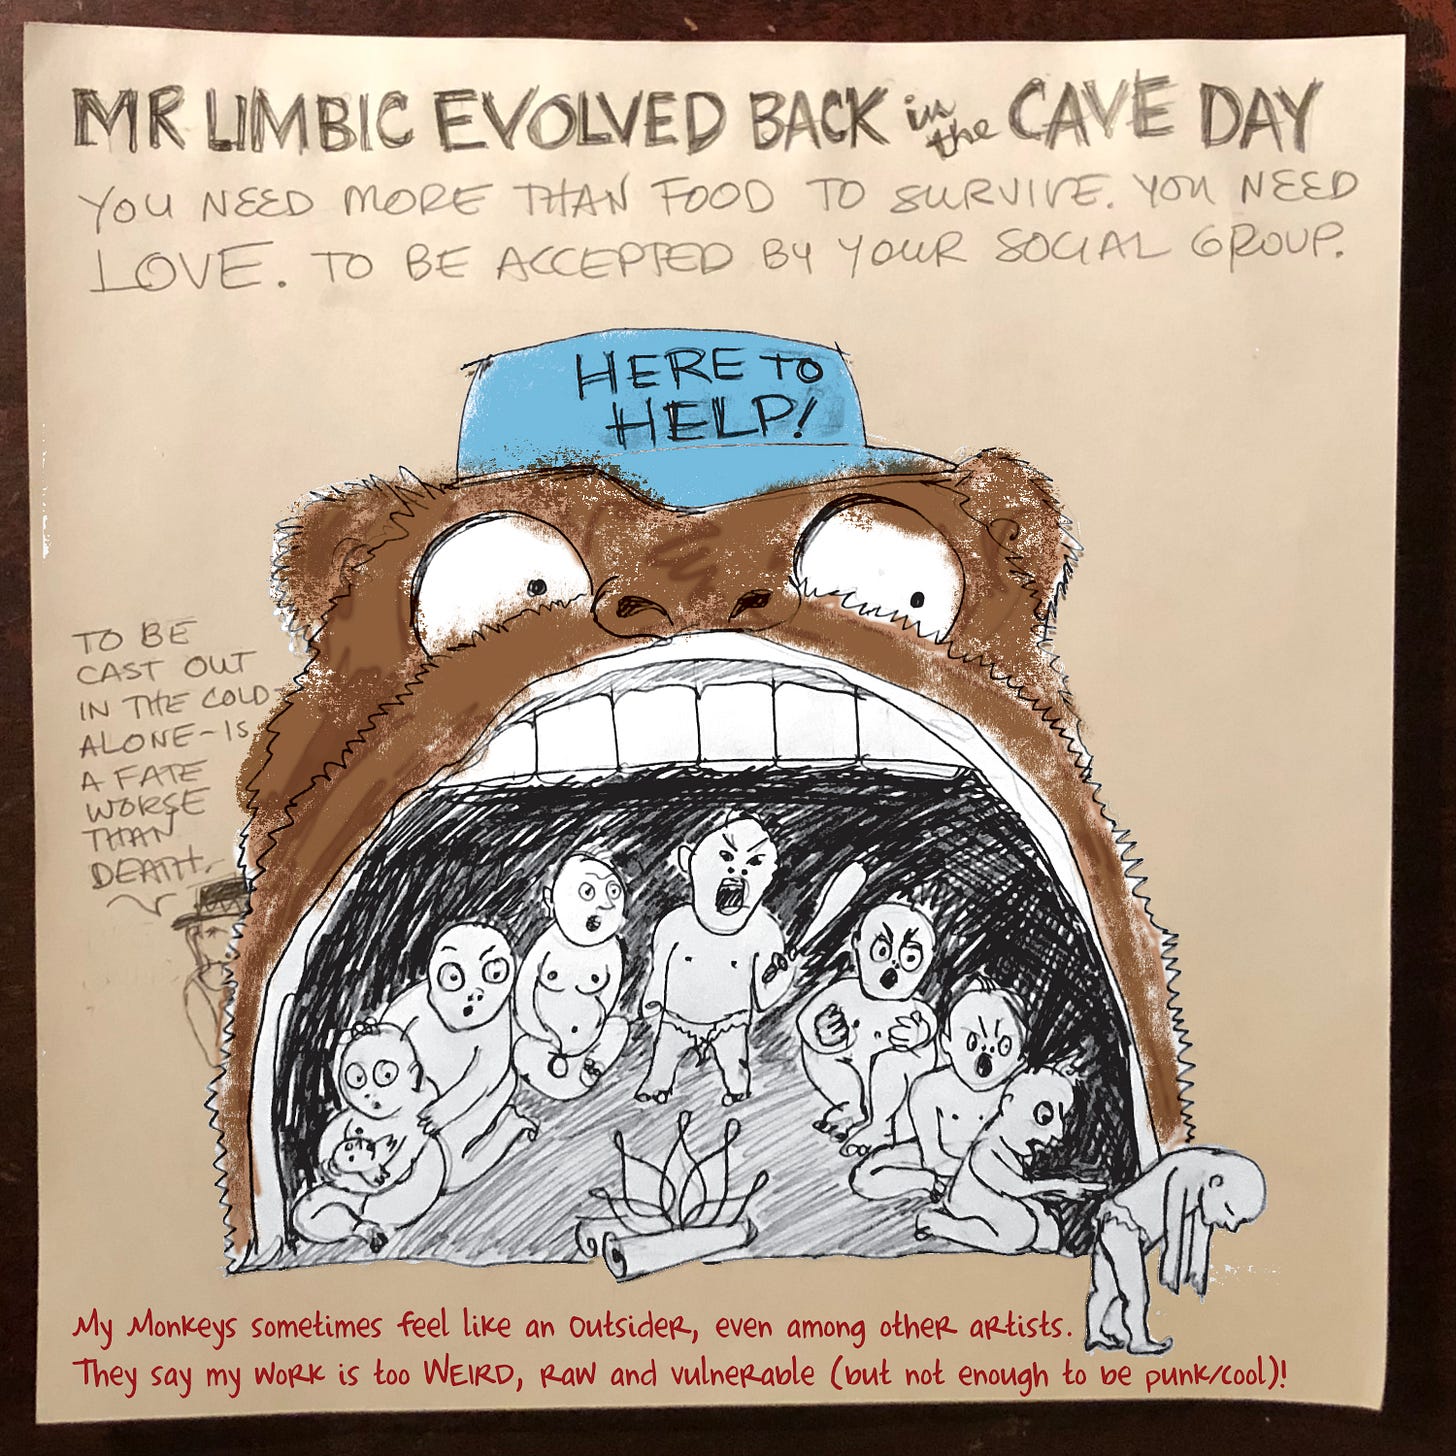 MR LIMBIC EVOLVED BACK in the CAVE DAY
YOU NEED MORE THAN FOOD TO SURVIVE. YOU NEED
LOVE. TO BE ACCEPTED BY YOUR SOCIAL GROUP.
HERE TO
HELP!
TO BE
CAST OUT
IN THE COLD
ALONE-IS
A FATE
WORSE
THAN
DEATH.
My Monkeys sometimes feel like an outsider, even among other artists.
They say my work is too WEIRD, raw and vulnerable (but not enough to be punk/cool)!